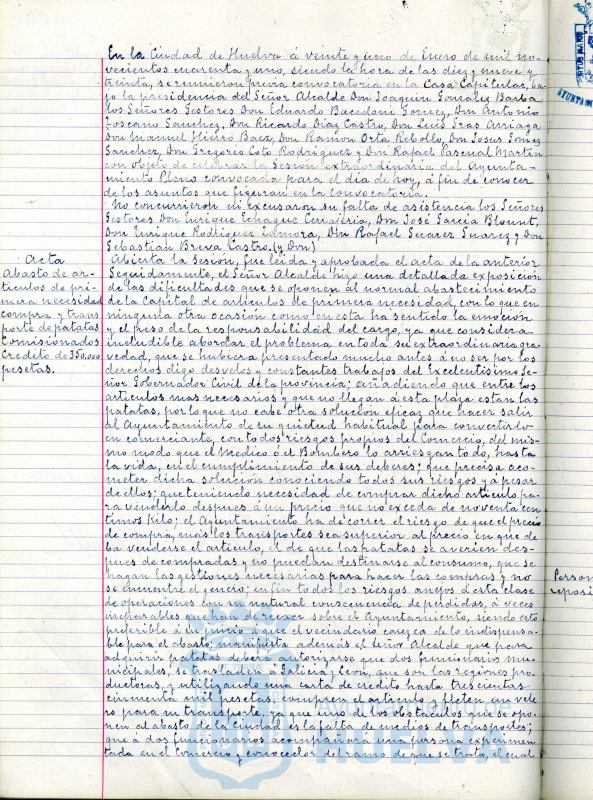 En la Ciudad de Huelva á veinte y uno de Enero de mil no-
vecientos cuarenta y uno, siendo la hora de las diez y nueve y
treinta, se reunieron previa convocatoria en la Casa Capitular, ba-
jo la presidencia del Señor Alcalde Don Joaquin Gonzalez Barba,
los Señores Gestores Don Eduardo Bacedoni Gomez, Don Antonio
Toscano Sanchez, Don Ricardo Diaz Castro, Don Luis Iras Arriaga
Don Manuel Hierro Baez, Don Ramon Orta Rebollo, Don Jesus Gomez
Sanchez, Don Gregorio Coto Rodriguez y Don Rafael Pascual Martin
con objeto de celebrar la Sesión extraordinaria del Ayunta-
miento Pleno convocada para el dia de hoy, á fin de conocer
de los asuntos que figuran en la convocatoria.
No concurrieron ni excusaron su falta de asistencia los Señores
Gestores Don Enrique Echaque Cerrajeria, Don José Garcia Blount,
Don Enrique Rodriguez Zamora, Don Rafael Suarez Suarez y Don
Sebastian Breva Castro. (y Don)
Acta
Abasto de ar-
ticulos de pri-
mera necesidad
compra y trans
porte de patatas
Comisionados
Credito de 350.000
pesetas.
Abierta la Sesión, fue leida y aprobada el acta de la anterior
Seguidamente, el Señor Alcalde hizo una detallada exposición
de las dificultades que se oponen al normal abastecimiento
de la Capital de articulos de primera necesidad, con lo que en
ninguna otra ocasión como en esta ha sentido la emoción
y el peso de la responsabilidad del cargo, ya que considera
ineludible abordar el problema en toda su extraordinaria gra-
vedad, que se hubiera presentado mucho antes á no ser por los
derechos digo desvelos y constantes trabajos del Excelentisimo Se-
ñor Gobernador Civil de la provincia; añadiendo que entre los
articulos mas necesarios y que no llegan á esta plaza estan las
patatas, por lo que no cabe otra solución eficaz que hacer salir
al Ayuntamiento de su quietud habitual para convertirlo
en comerciante, con todos riesgos propios del Comercio, del mis-
mo modo que el Medico ó el Bombero lo arriesgan todo, hasta
la vida, en el cumplimiento de sus deberes; que precisa aco-
meter dicha solución conociendo todos sus riesgos y á pesar
de ellos; que teniendo necesidad de comprar dicho articulo pa-
ra venderlo despues á un precio que no exceda de noventa cen-
timos Kilo; el Ayuntamiento ha de correr el riesgo de que el precio
de compra, mas los transportes sea superior al precio en que de-
ba venderse el articulo, el de que las patatas se averien des-
pues de compradas y no puedan destinarse al consumo, que se
hagan las gestiones necesarias para hacer las compras y no
se encuentre el genero; en fin todos los riesgos anejos á esta clase
de operaciones con su natural consecuencia de perdidas, á veces
que han de recaer sobre el Ayuntamiento, siendo esto
preferible á su juicio á que el vecindario carezca de lo indispensa-
ble para el abasto; manifestó además el Señor Alcalde que para
adquirir patatas deberá autorizarse que dos funcionarios mu-
nicipales, se trasladen á Galicia y que son las regiones pro-
ductoras, y utilizando una carta de credito hasta trescientas
cincuenta mil pesetas, compren el articulo y fleten un vele-
ro para su transporte, ya que uno de los obstaculos que se opo-
nen al abasto de la Ciudad es la falta de medios de transportes;
que á dos funcionarios acompañará una persona experimen-
tada en el Comercio y conocedor del ramo de que se trata, el cual
Person
reposi